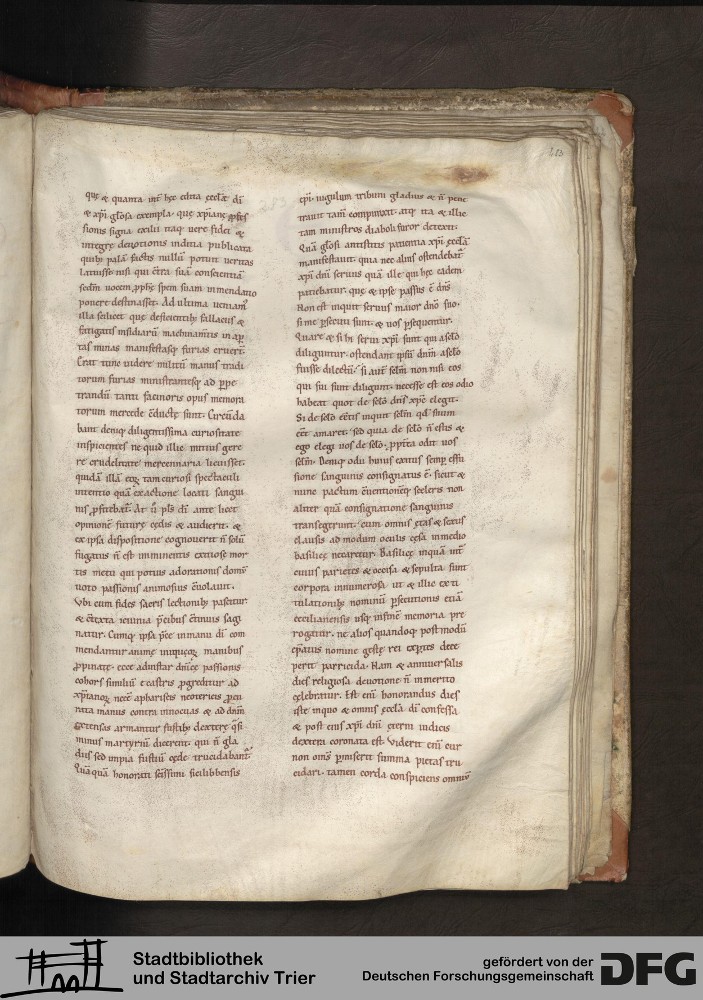 413
quę & quanta int̄ hęc edita ęcclā dī
& xp̄i gl̄osa exempla
sionis signa exilii itaq; uere fidei &
integrę deuotionis inditia publicata
quib; palā factis nullū potuit ueritas
latuisse nisi qui c̄tra suā conscientiā
scdm̄ uocem ,pphę spem suam inmendatio
ponere destinasset. Ad ultima
illa scilicet quę deficientib; fallaciis &
fatigatis insidiarū machinam̄tis in
tas minas manifestasq; furias
Erat tunc uidere militū manus tradi
torum furias ministrantesq; ad
trandū tanti facinoris opus memora
torum mercede c̄ductę sunt. Circūda
bant deniq; diligentissima curiositate
inspicientes ne quid illic mitius gere
re crudelitate mercennaria licuisset.
quādā illā tam curiosi spectaculi
intentio quā exactione locati sangui
nis p̄fitebat᷑. At
opinionē futurę cędis & audierit. &
ex ipsa dispositione cognouerit n̄ solū
fugatus n̄ est imminentis exitiosę mor
tis metu qui potius adorationis domū
uoto passionis animosius c̄uolauit.
Vbi cum fides sacris lectionib; pascitur
& c̄texta ieiunia p̄cibus c̄tinuis sagi
natur. Cumq; ipsa pręce inmanu dī com
mendantur animę iniquoꝝ manibus
ꝓpinatę. ecce adinstar dn̄icę passionis
cohors similiū e castris ꝓgreditur ad
xp̄ianoꝝ necē apharisęis neotericis
rata manus contra innocuas & ad dn̄m
extensas armantur fustib; dexterę
minus martyriū dicerent. qui n̄ gla
diis sed impia fustiū cęde trucidabant᷑.
Quāquā honorati scīssimi sicilibbensis
ep̄i. iugulum tribuni gladius & n̄ pene
trauit tam̄ compunxit. atq; ita & illic
tam ministros diaboli furor detexit.
Quā gl̄osi antistitis patientia xp̄i ęcclā
manifestauit. quia nec alius ostendebat᷑
xp̄i dn̄i seruus quā ille qui hęc eadem
patiebatur. quę & ipse passus ē dn̄s
Non est inquit seruus maior dn̄o suo.
si me p̄secuti sunt. & uos p̄sequentur.
Quare & si hi serui xp̄i sunt qui asc̄lo
diliguntur. ostendant ipsū dn̄m asc̄lo
fuisse dilectū. si aut̄ sc̄lm̄ non nisi eos
qui sui sunt diligunt. necesse est eos odio
habeat quos de sc̄lo dn̄s xp̄c elegit.
Si de sc̄lo ēetis inquit sc̄lm qd̄ suum
ēēt amaret. sed quia de sc̄lo n̄ estis &
ego elegi uos de sc̄lo. ꝓpt̄ea odit uos
sc̄lm. Deniq; odii huius exitus semꝑ effu
sione sanguinis consignatus ē. sicut &
nunc pactum c̄uentionēq; sceleris non
aliter quā consignatione sanguinis
transegerunt. cum omnis ętas & sexus
clausis ad modum oculis cęsa inmedio
basilicę necaretur. Basilicę inquā int̄
cuius parietes & occisa & sepulta sunt
corpora innumerosa ut & illic ex ti
tulationib; nominū p̄secutionis etiā
cecilianensis usq; infinē memoria pre
rogatur. ne alios quandoq; postmodū
ep̄atus nomine gestę rei exp̄tes dece
perit parricida. Nam & anniuersalis
dies religiosa deuotione n̄ inmerito
cęlebratur. Est eni̅ honorandus dies
iste inquo & omnis ęcclā dī confessa
& post eius xp̄i dn̄i ęterni iudicis
dextera coronata est. Viderit eni̅ cur
non om̄s p̄miserit summa pietas tru
cidari. tamen corda conspiciens omniū
Stadtbibliothek
und Stadtarchiv Trier
gefördert von der
Deutschen Forschungsgemeinschaft
DFG